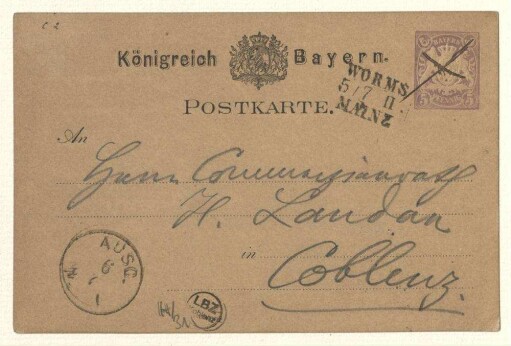 c 2
Königreich Bayern.
BAYERN
PFENNIG
WORMS
5/7 II
MAINZ
POSTKARTE.
An
Herrn Commerzienrath
H. Landau
in
Coblenz.
AUSG.
LBZ